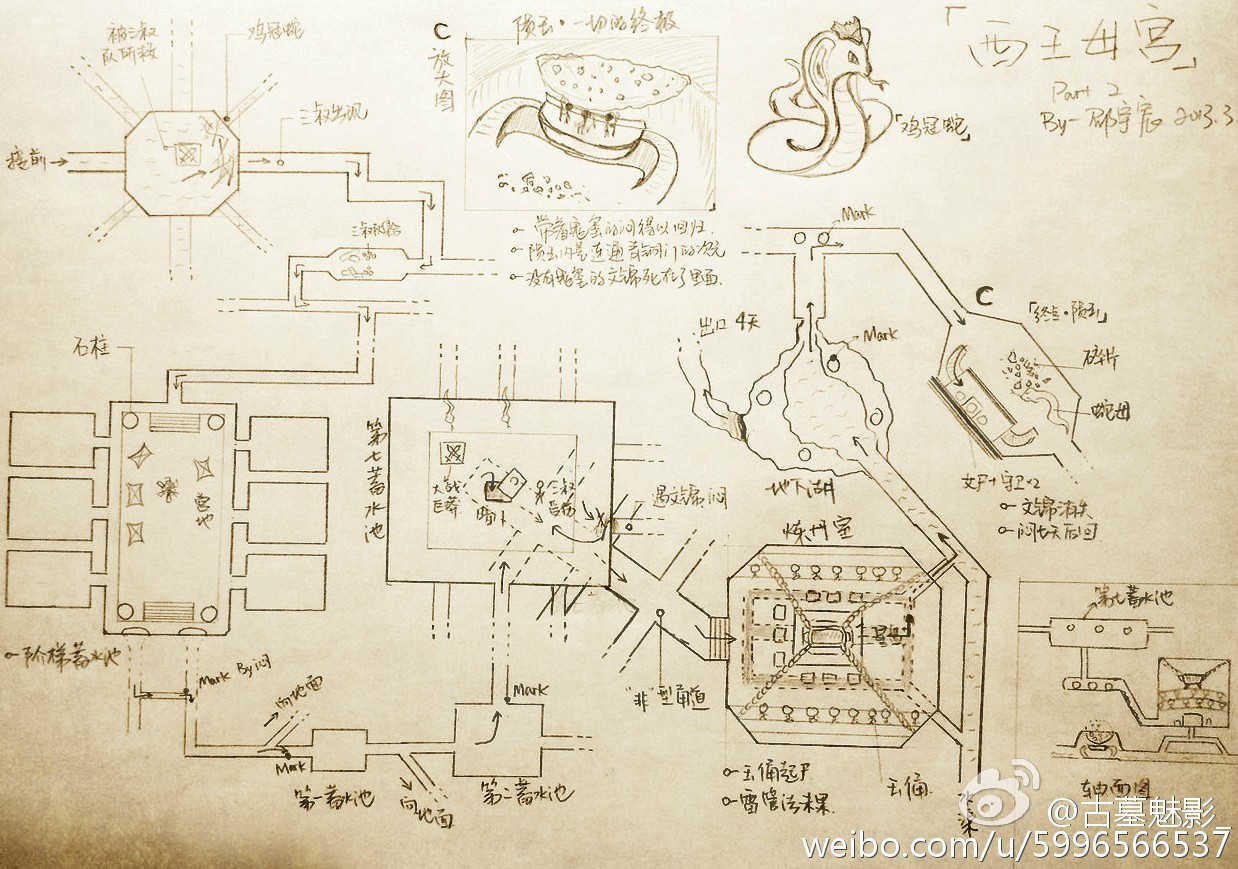 「西王母宫」
Part 2
By-邵宇宸 2013.3
被三叔
队所救
鸡冠蛇
三叔出现
接前
C
放大图
陨玉·一切的终极
「鸡冠蛇」
带着鬼玺的闷得以回归.
陨玉内是连通青铜门的次元
没有鬼玺的文锦死在了里面.
石柱
营地
阶梯蓄水池
Mark By闷
向地面
Mark
第一蓄水池
向地面
第二蓄水池
Mark
第七蓄水池
大战
巨蟒
暗卜
三叔
遇文锦闷
"非"型甬道
出口 4天
Mark
Mark
地下湖
C
「终点·陨玉」
碎片
蛇母
女尸+守卫×2
文锦消失
闷七天后回
炼丹室
玉俑起尸
雷管法
玉俑
深
第七蓄水池
轴面图
@古墓魅影_
weibo.com/u/5996566537